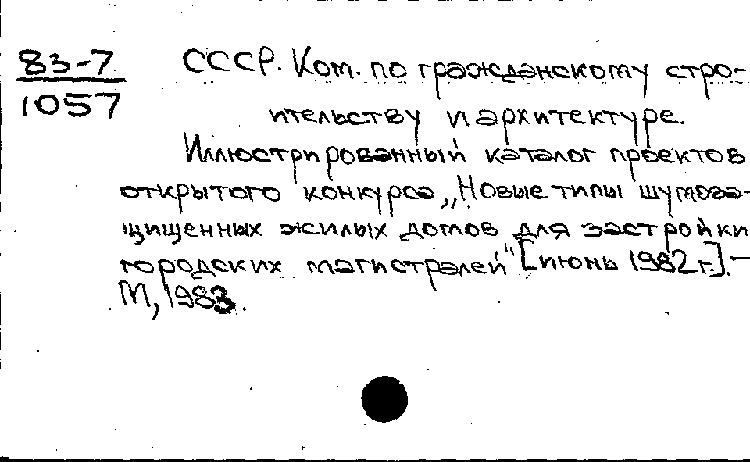 83-7 СССР. Ком. по гражданскому стро-
1057 ительству и архитектуре.
Иллюстрированный каталог проектов
открытого конкурса „Новые типы шумоза-
щищенных жилых домов для застройки
городских магистралей" [июнь 1982 г.]. —
М, 1983.